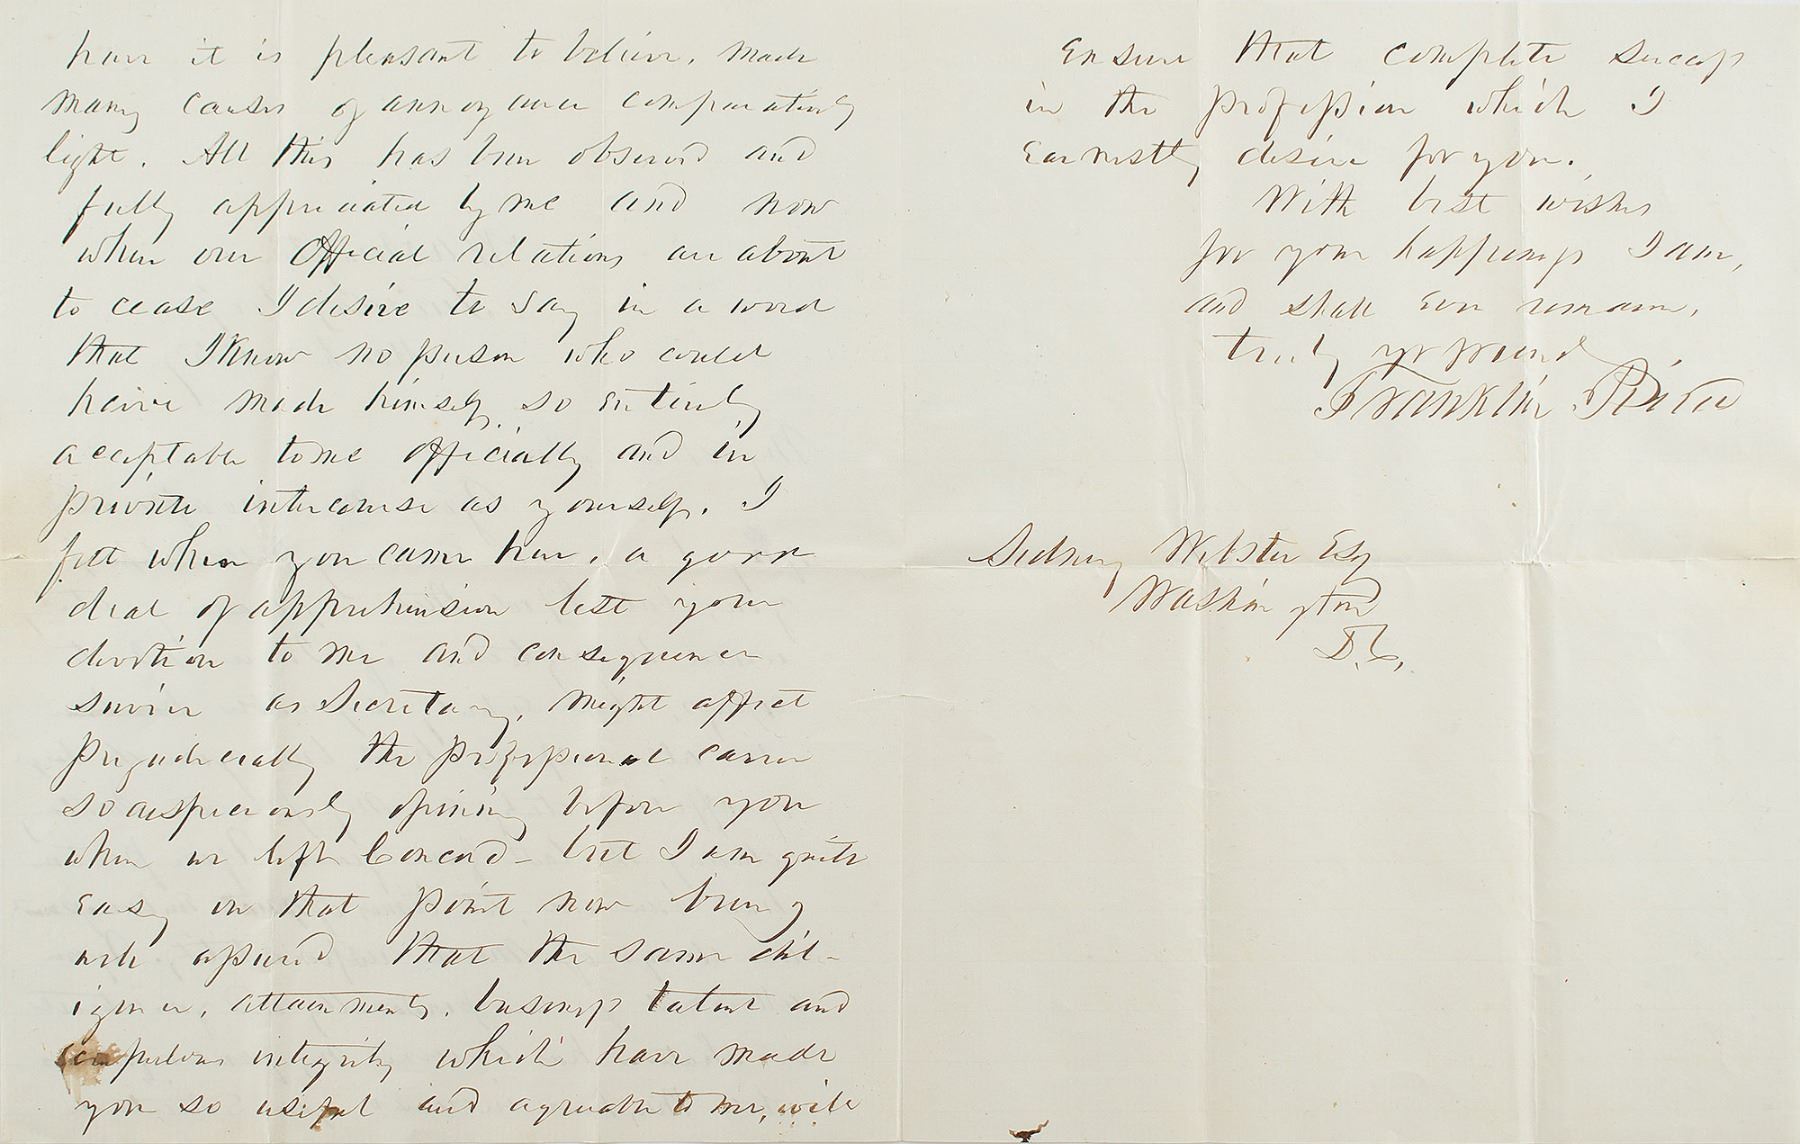 have it is pleasant to believe, made
many causes of annoyance comparatively
light. All this has been observed and
fully appreciated by me and now
when our Official relations are about
to cease I desire to say in a word
that I know no person who could
have made himself so entirely
acceptable to me officially and in
private intercourse as yourself. I
felt when you came here, a good
deal of apprehension lest your
devotion to me and consequence
service as Secretary, might affect
prejudicially the professional career
so auspiciously opening before you
when we left Concord - but I am quite
easy on that point now being
well assured that the same dil-
igence, attainments, business talent and
scrupulous integrity which have made
you so useful and agreeable to me, will
Ensure that complete success
in the profession which I
Earnestly desire for you.
With best wishes
for your happiness I am,
and shall ever remain,
truly yr friend
Franklin Pierce
Sidney Webster Esq
Washington
D.C.